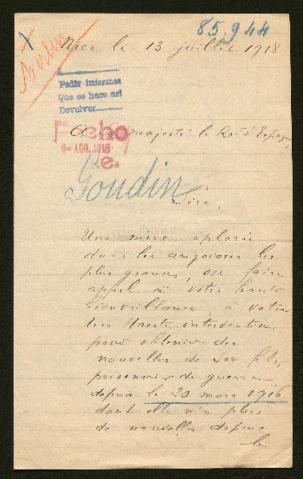 85944
Nice le 13 juillet 1918
Pedir informes
Que se hace así
Devolver
Fecho
9 - AGO. 1918
e.
A sa majesté le Roi d'Espagne
Goudin
Sire,
Une mère éplorée
dans les angoisses les
plus graves, ose faire
appel à votre haute
bienveillance à votre
très Haute intervention
pour obtenir des
nouvelles de son fils,
prisonnier de guerre
depuis le 23 mars 1916
dont elle n'a plus
de nouvelles depuis
le